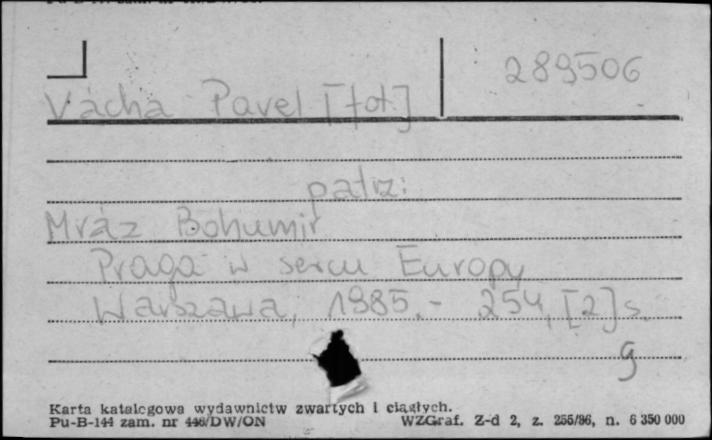 289506
Vácha Pavel [fot.]
patrz:
Mráz Bohumir
Praga w sercu Europy
Warszawa, 1985.- 254, [2] s.
g
Karta katalogowa wydawnictw zwartych i ciągłych.
Pu-B-144 zam. nr 446/DW/ON WZGraf. Z-d 2, z. 255/86, n. 6 350 000